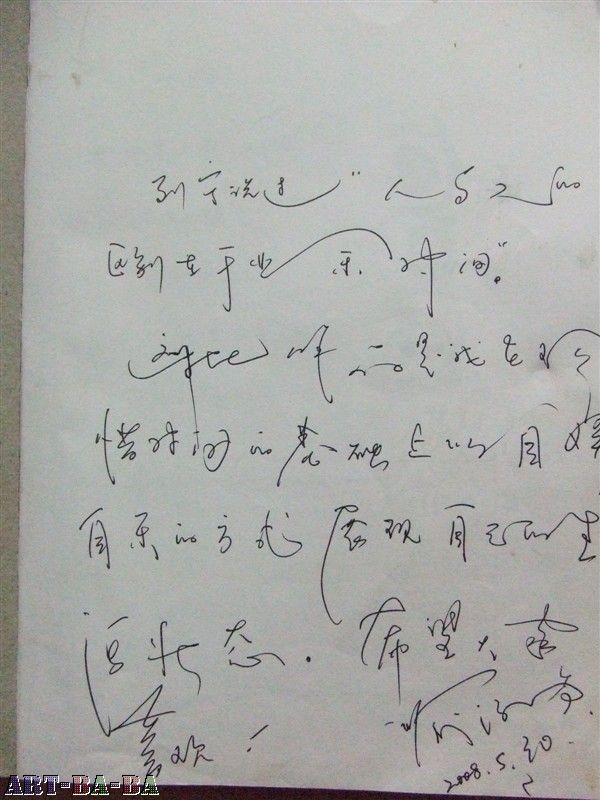 列宁说过"人与人的
区别在于业余时间"。
这批作品是我在珍
惜时间的基础上以自娱
自乐的方式展现自己的生
活状态。希望大家
喜欢!
2008.5.30
ART-BA-BA